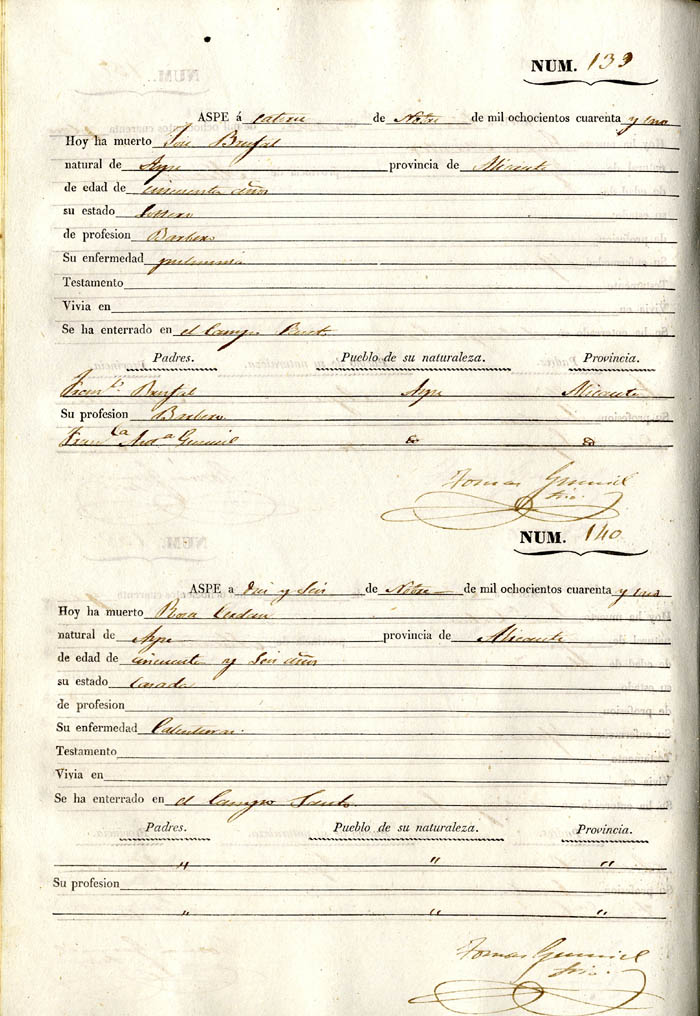 NUM. 139
ASPE á catorce de Nobre de mil ochocientos cuarenta y uno
Hoy ha muerto José Brufal
natural de Aspe provincia de Alicante
de edad de cincuenta años
su estado Soltero
de profesion Barbero
Su enfermedad pulmonia
Testamento
Vivia en
Se ha enterrado en el Campo Santo
Padres. Pueblo de su naturaleza. Provincia.
Franco. Brufal Aspe Alicante
Su profesion Barbero
Franca Anta
Tomas
NUM. 140
ASPE a Diez y Seis de Nobre de mil ochocientos cuarenta y uno
Hoy ha muerto Rosa
natural de Aspe provincia de Alicante
de edad de cincuenta y Seis años
su estado Casada
de profesion
Su enfermedad Calenturas.
Testamento
Vivia en
Se ha enterrado en el Campo Santo
Padres. Pueblo de su naturaleza. Provincia.
" " "
Su profesion
" " "
Tomas